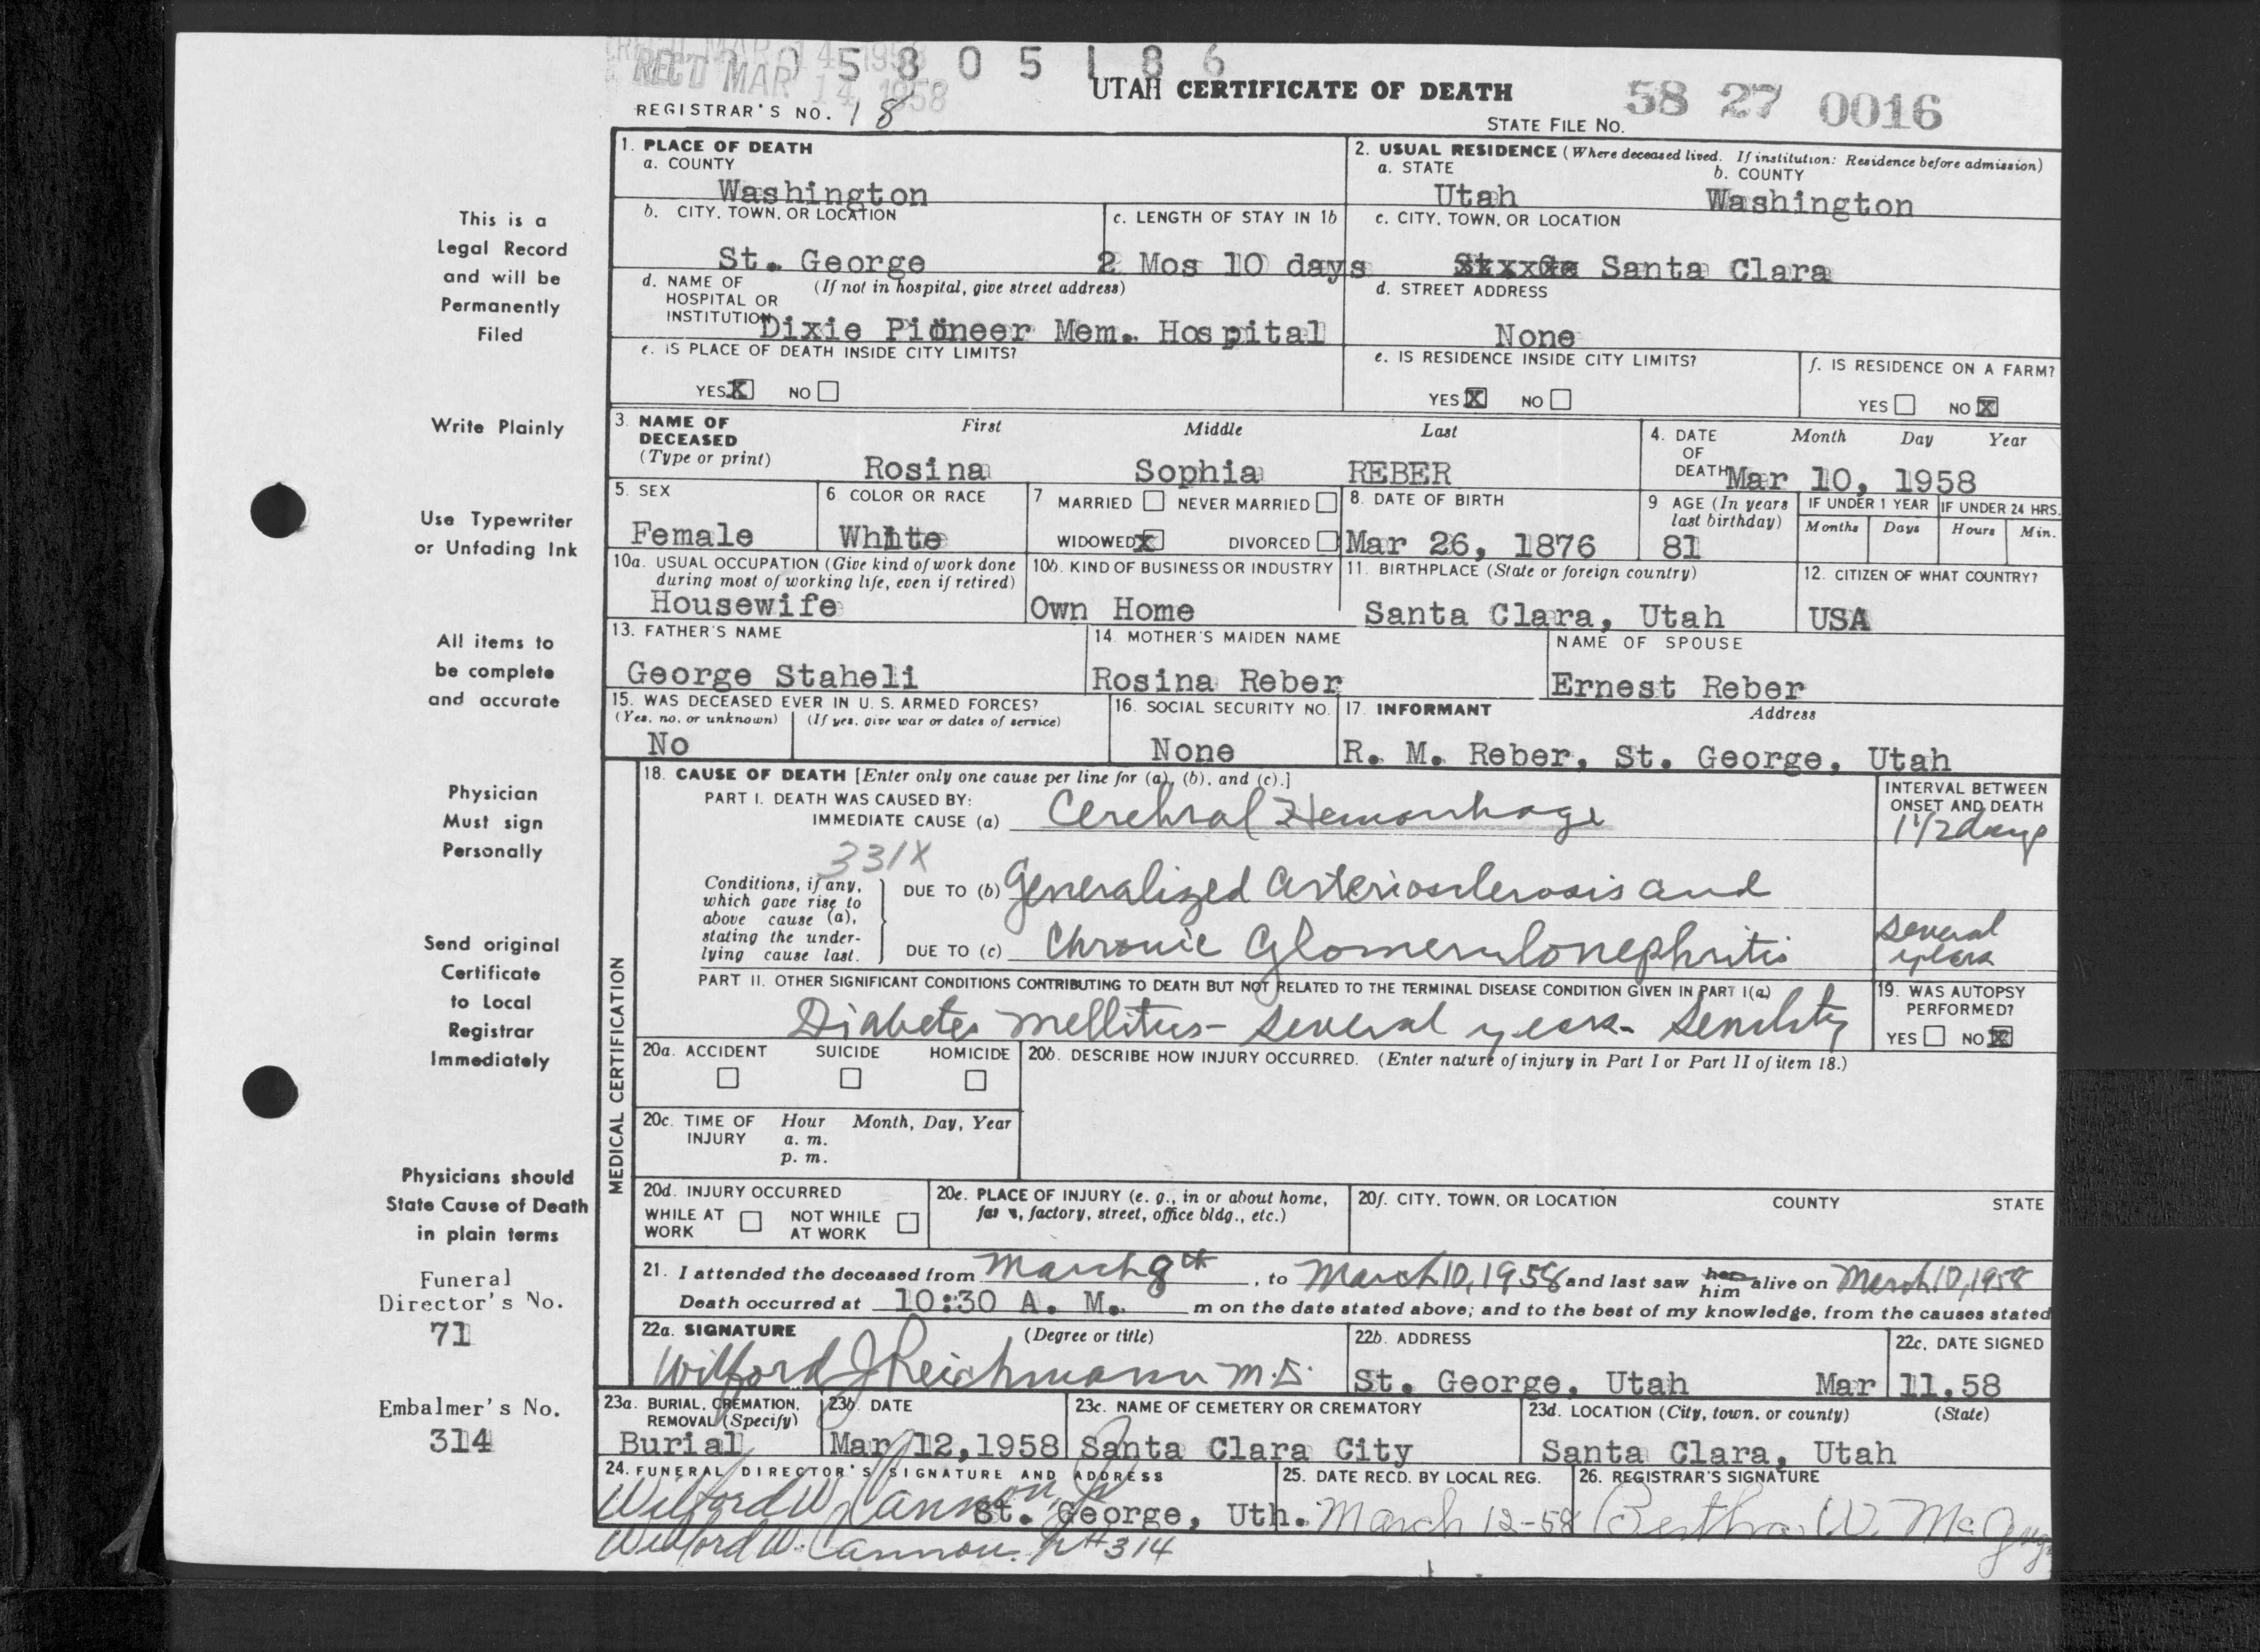 REC'D MAR 14 1958
0 5 8 0 5 1 8 6
UTAH CERTIFICATE OF DEATH
REGISTRAR'S NO. 18
STATE FILE NO. 58 27 0016
This is a
Legal Record
and will be
Permanently
Filed
Write Plainly
Use Typewriter
or Unfading Ink
All items to
be complete
and accurate
Physician
Must sign
Personally
Send original
Certificate
to Local
Registrar
Immediately
Physicians should
State Cause of Death
in plain terms
Funeral
Director's No.
71
Embalmer's No.
314
1. PLACE OF DEATH
a. COUNTY
Washington
2. USUAL RESIDENCE (Where deceased lived. If institution: Residence before admission)
a. STATE b. COUNTY
Utah Washington
b. CITY, TOWN, OR LOCATION
St. George
c. LENGTH OF STAY IN 1b
2 Mos 10 days
c. CITY, TOWN, OR LOCATION
Santa Clara
d. NAME OF HOSPITAL OR INSTITUTION (If not in hospital, give street address)
Dixie Pioneer Mem. Hospital
d. STREET ADDRESS
None
e. IS PLACE OF DEATH INSIDE CITY LIMITS?
YES X NO
e. IS RESIDENCE INSIDE CITY LIMITS?
YES X NO
f. IS RESIDENCE ON A FARM?
YES NO X
3. NAME OF DECEASED (Type or print)
First Middle Last
Rosina Sophia REBER
4. DATE OF DEATH Month Day Year
Mar 10, 1958
5. SEX
Female
6. COLOR OR RACE
White
7 MARRIED NEVER MARRIED
WIDOWED X DIVORCED
8. DATE OF BIRTH
Mar 26, 1876
9 AGE (In years last birthday)
81
IF UNDER 1 YEAR IF UNDER 24 HRS.
Months Days Hours Min.
10a. USUAL OCCUPATION (Give kind of work done during most of working life, even if retired)
Housewife
10b. KIND OF BUSINESS OR INDUSTRY
Own Home
11. BIRTHPLACE (State or foreign country)
Santa Clara, Utah
12. CITIZEN OF WHAT COUNTRY?
USA
13. FATHER'S NAME
George Staheli
14. MOTHER'S MAIDEN NAME
Rosina Reber
NAME OF SPOUSE
Ernest Reber
15. WAS DECEASED EVER IN U. S. ARMED FORCES?
(Yes, no, or unknown) (If yes, give war or dates of service)
No
16. SOCIAL SECURITY NO.
None
17. INFORMANT Address
R. M. Reber, St. George, Utah
MEDICAL CERTIFICATION
18. CAUSE OF DEATH [Enter only one cause per line for (a), (b), and (c).]
PART I. DEATH WAS CAUSED BY:
IMMEDIATE CAUSE (a) Cerebral Hemorrhage
INTERVAL BETWEEN ONSET AND DEATH
1 1/2 days
331X
Conditions, if any, which gave rise to above cause (a), stating the underlying cause last.
DUE TO (b) Generalized arteriosclerosis and
DUE TO (c) Chronic Glomerulonephritis
several years
PART II. OTHER SIGNIFICANT CONDITIONS CONTRIBUTING TO DEATH BUT NOT RELATED TO THE TERMINAL DISEASE CONDITION GIVEN IN PART I(a)
Diabetes mellitus - several years - Senility
19. WAS AUTOPSY PERFORMED?
YES NO X
20a. ACCIDENT SUICIDE HOMICIDE
20b. DESCRIBE HOW INJURY OCCURRED. (Enter nature of injury in Part I or Part II of item 18.)
20c. TIME OF INJURY Hour Month, Day, Year
a. m.
p. m.
20d. INJURY OCCURRED
WHILE AT WORK NOT WHILE AT WORK
20e. PLACE OF INJURY (e. g., in or about home, farm, factory, street, office bldg., etc.)
20f. CITY, TOWN, OR LOCATION COUNTY STATE
21. I attended the deceased from March 8th, to March 10, 1958 and last saw her him alive on March 10, 1958
Death occurred at 10:30 A. M. m on the date stated above; and to the best of my knowledge, from the causes stated
22a. SIGNATURE (Degree or title)
Wilford J Reichmann M.D.
22b. ADDRESS
St. George, Utah
22c. DATE SIGNED
Mar 11.58
23a. BURIAL, CREMATION, REMOVAL (Specify)
Burial
23b. DATE
Mar 12,1958
23c. NAME OF CEMETERY OR CREMATORY
Santa Clara City
23d. LOCATION (City, town, or county) (State)
Santa Clara, Utah
24. FUNERAL DIRECTOR'S SIGNATURE AND ADDRESS
Wilford W. Cannon, Jr
St. George, Uth.
25. DATE RECD. BY LOCAL REG.
March 12-58
26. REGISTRAR'S SIGNATURE
Bertha W. 
Wilford W. Cannon. Jr #314